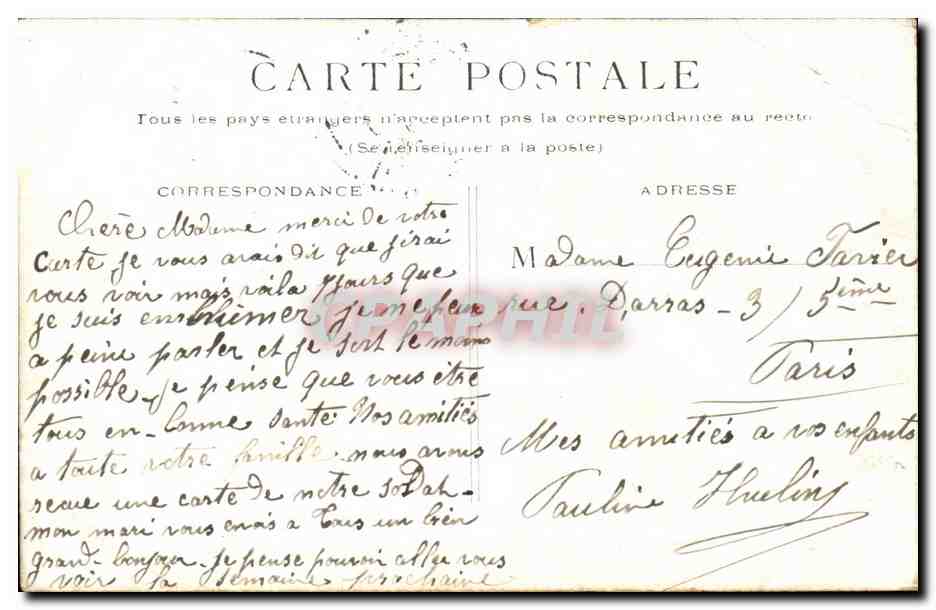 CARTE POSTALE
Tous les pays étrangers n'acceptent pas la correspondance au recto
(Se renseigner à la poste)
CORRESPONDANCE
Chère Madame merci de votre
carte je vous avais dit que j'irai
vous voir mais voila 7 jours que
je suis enrhumer je ne peux
a peine parler et je sort le moins
possible je pense que vous etre
tous en bonne santé. Nos amitiés
a toute votre famille nous avons
recue une carte de notre soldat
mon mari vous envois a tous un bien
grand bonjour. je pense pouvoir allee vous
voir la semaine prochaine
ADRESSE
Madame Eugenie Tarier
rue Darras - 3 / 5ème
Paris
Mes amitiés a vos enfants
Pauline Huelin
CPAPHIL